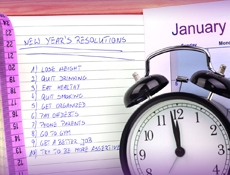 NEW YEAR'S RESOLUTIONS
1) LOSE HEIGHT
2) QUIT DRINKING
3) EAT HEALTHY
4) QUIT SMOKING
5) GET ORGANIZED
6) PAY DEBTS
7) PHONE PARENTS
8) GO TO GYM
9) GET A BETTER JOB
10) TRY TO BE MORE ASSERTIVE
January
Sunday
12
11
10
9
8
7